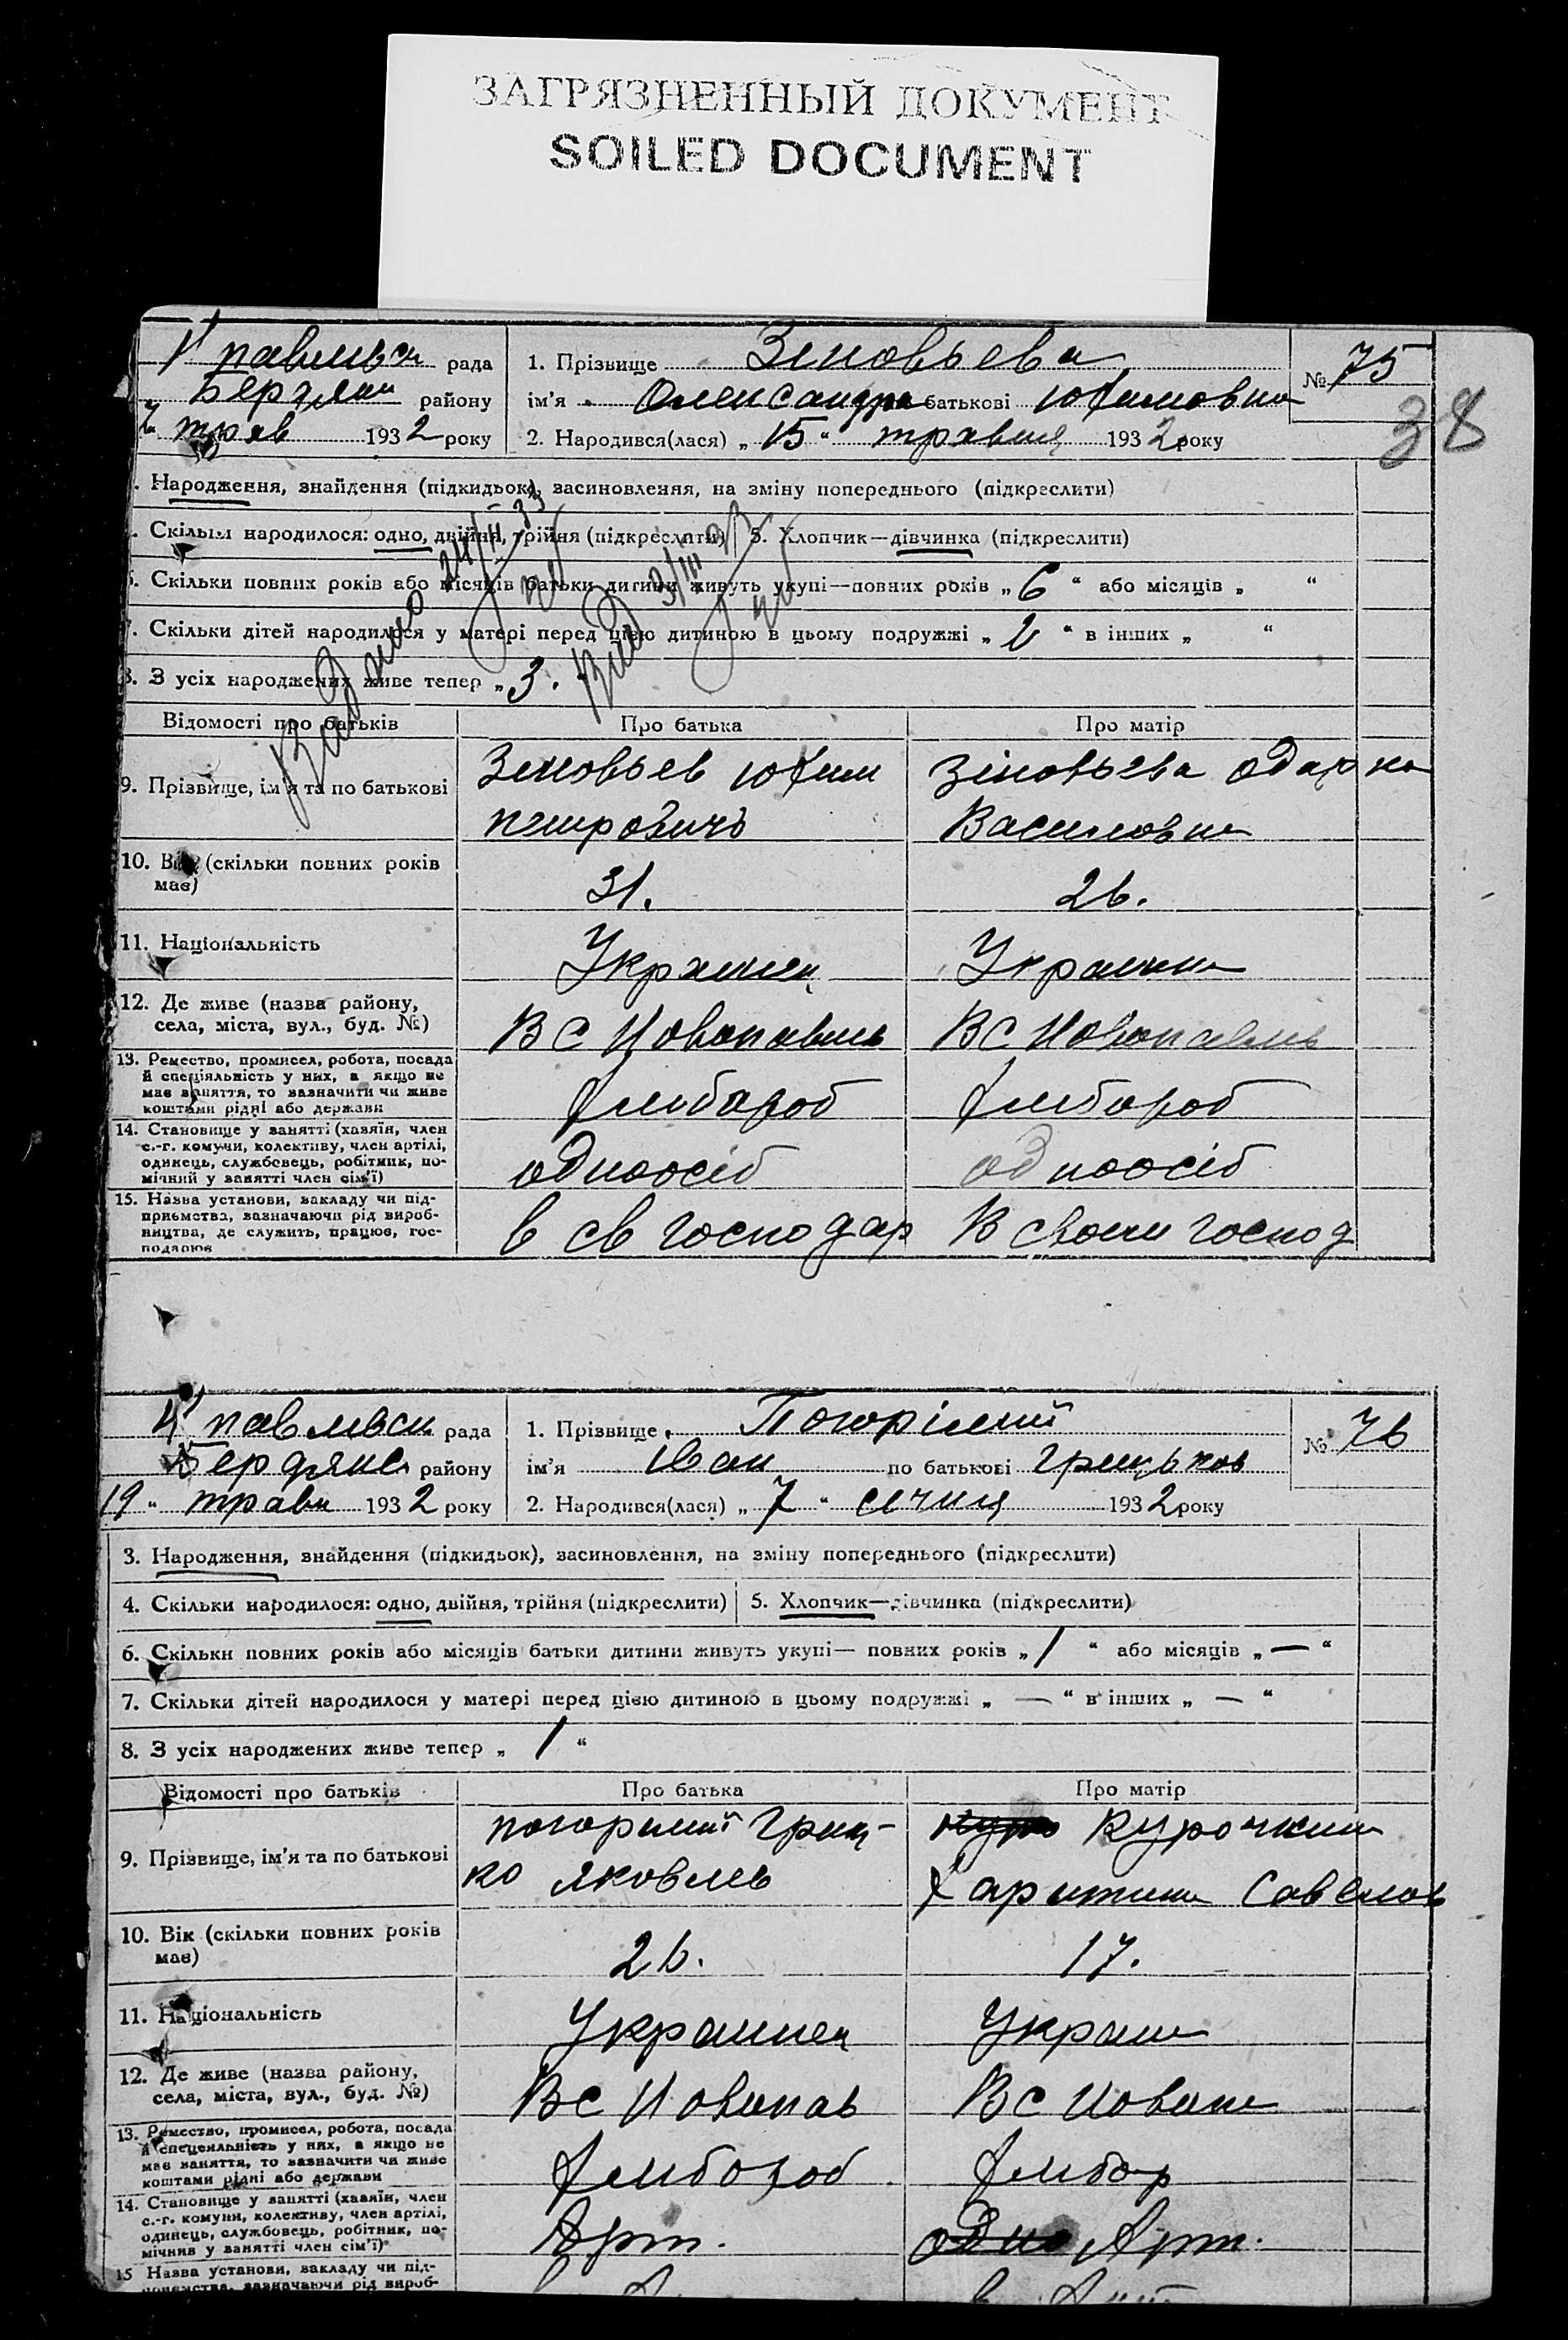 ЗАГРЯЗНЕННЫЙ ДОКУМЕНТ
SOILED DOCUMENT
павльск рада
Бердян району
трав 1932 року
1. Прізвище Зіновьева
ім'я Олександра батькові Юхимовна
2. Народився(лася) „15“ травня 1932 року
№ 75
38
Народження, знайдення (підкидьок), засиновлення, на зміну попереднього (підкреслити)
Скільки народилося: одно, двійня, трійня (підкреслити) 5. Хлопчик—дівчинка (підкреслити)
Скільки повних років або місяців батьки дитини живуть укупі—повних років „6“ або місяців „ “
Скільки дітей народилося у матері перед цією дитиною в цьому подружжі „2“ в інших „ “
8. З усіх народжених живе тепер „3.
Відомості про батьків Про батька Про матір
9. Прізвище, ім'я та по батькові
Зіновьев Юхим
Зіновьева Одарка
Василовна
10. Вік (скільки повних років має)
31. 26.
11. Національність
Украинец Украинка
12. Де живе (назва району,
села, міста, вул., буд. №)
ВС Новопавль ВС Новопавль
13. Ремество, промисел, робота, посада
й спеціяльність у них, а якщо не
має заняття, то зазначити чи живе
коштами рідні або держави
Хлібороб Хлібороб
14. Становище у занятті (хазяїн, член
с.-г. комуни, колективу, член артілі,
одинець, службовець, робітник, по-
мічний у занятті член сім'ї)
одноосіб одноосіб
15. Назва установи, закладу чи під-
приємства, зазначаючи рід вироб-
ництва, де служить, працює, гос-
подарює
в св господар В своем господ
павлівск рада
Бердянс району
19 „ трав 1932 року
1. Прізвище Погорілий
ім'я Іван по батькові Грицьков
2. Народився(лася) „7“ січня 1932 року
№ 76
3. Народження, знайдення (підкидьок), засиновлення, на зміну попереднього (підкреслити)
4. Скільки народилося: одно, двійня, трійня (підкреслити) 5. Хлопчик—дівчинка (підкреслити)
6. Скільки повних років або місяців батьки дитини живуть укупі— повних років „1“ або місяців „—“
7. Скільки дітей народилося у матері перед цією дитиною в цьому подружжі „—“ в інших „—“
8. З усіх народжених живе тепер „1“
Відомості про батьків Про батька Про матір
9. Прізвище, ім'я та по батькові
погорилий Гриц-
ко яковль
Курочкин
Харитина Савелов
10. Вік (скільки повних років має)
26. 17.
11. Національність
Украинец Украин
12. Де живе (назва району,
села, міста, вул., буд. №)
ВС Новопав ВС Новопа
13. Ремество, промисел, робота, посада
й спеціяльність у них, а якщо не
має заняття, то зазначити чи живе
коштами рідні або держави
Хлібороб Хлібор
14. Становище у занятті (хазяїн, член
с.-г. комуни, колективу, член артілі,
одинець, службовець, робітник, по-
мічний у занятті член сім'ї)
Арт. Арт.
15 Назва установи, закладу чи під-
приємства, зазначаючи рід вироб-